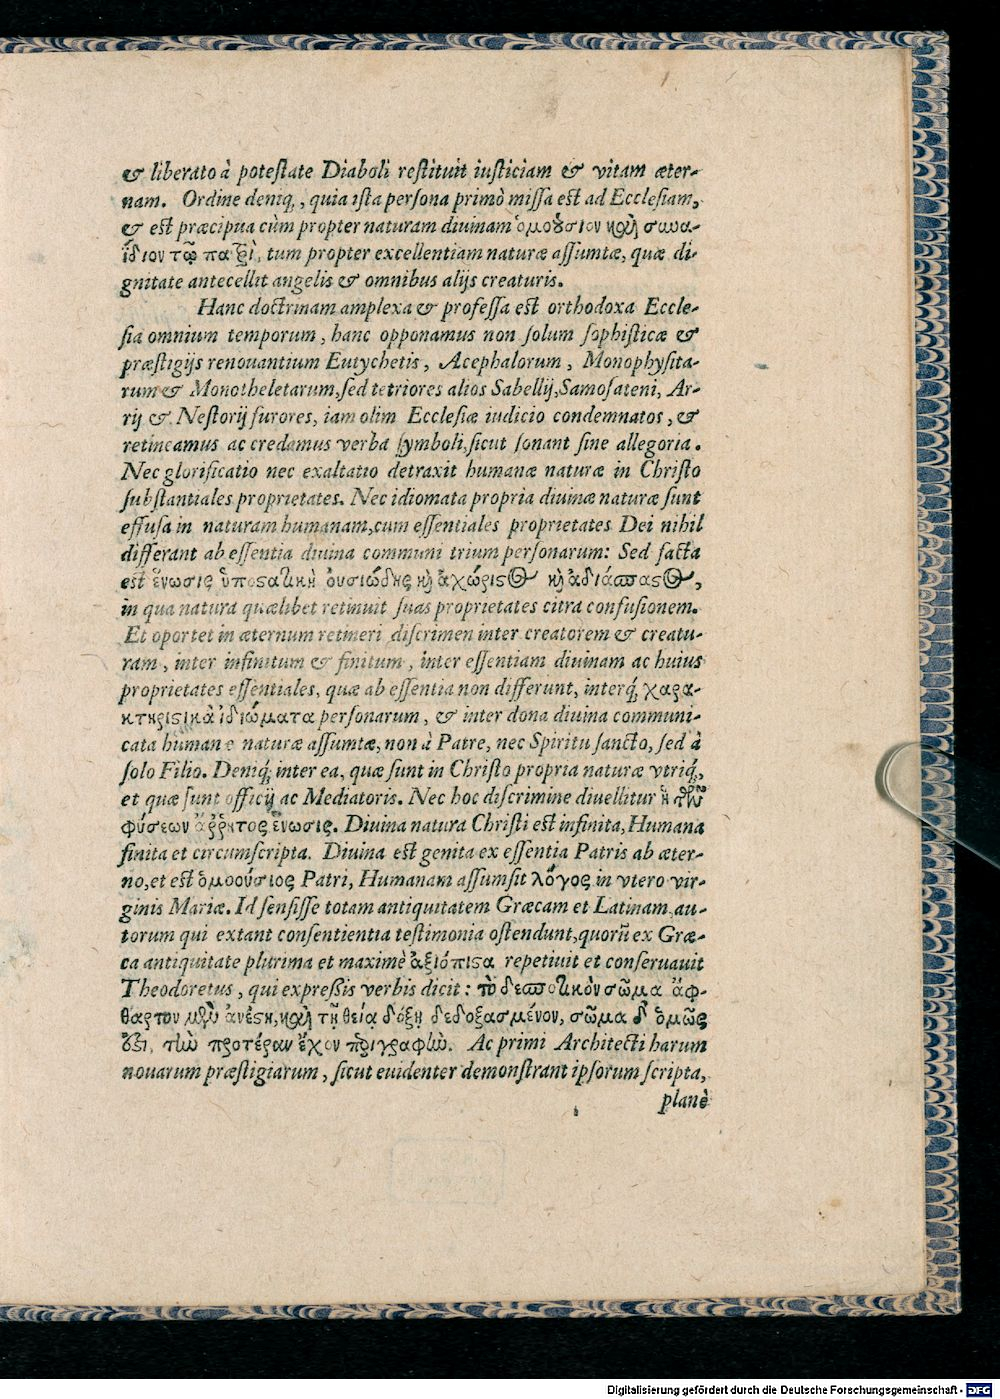 & liberato à potestate Diaboli restituit iusticiam & vitam æter-
nam. Ordine deniq́;, quia ista persona primò missa est ad Ecclesiam,
& est præcipua cùm propter naturam diuinam ὁμούσιον καὶ συνα-
ΐδιον τῷ πατρὶ, tum propter excellentiam naturæ assumtæ, quæ di-
gnitate antecellit angelis & omnibus alijs creaturis.
Hanc doctrinam amplexa & professa est orthodoxa Eccle-
sia omnium temporum, hanc opponamus non solum sophisticæ &
præstigijs renouantium Eutychetis, Acephalorum, Monophysita-
rum & Monotheletarum, sed tetriores alios Sabellij, Samosateni, Ar-
rij & Nestorij furores, iam olim Ecclesiæ iudicio condemnatos, &
retineamus ac credamus verba symboli, sicut sonant sine allegoria.
Nec glorificatio nec exaltatio detraxit humanæ naturæ in Christo
substantiales proprietates. Nec idiomata propria diuinæ naturæ sunt
effusa in naturam humanam, cum essentiales proprietates Dei nihil
differant ab essentia diuina communi trium personarum: Sed facta
est ἕνωσις ὑποστατικὴ οὐσιώδης καὶ ἀχώριστος καὶ ἀδιάσπαστος,
in qua natura quælibet retinuit suas proprietates citra confusionem.
Et oportet in æternum retineri discrimen inter creatorem & creatu-
ram, inter infinitum & finitum, inter essentiam diuinam ac huius
proprietates essentiales, quæ ab essentia non differunt, interq́; χαρα-
κτηριστικὰ ἰδιώματα personarum, & inter dona diuina communi-
cata humanæ naturæ assumtæ, non à Patre, nec Spiritu sancto, sed à
solo Filio. Deniq́; inter ea, quæ sunt in Christo propria naturæ vtriq́;,
et quæ sunt officij ac Mediatoris. Nec hoc discrimine diuellitur ἡ τῶν
φύσεων ἄῤῥητος ἕνωσις. Diuina natura Christi est infinita, Humana
finita et circumscripta. Diuina est genita ex essentia Patris ab æter-
no, et est ὁμοούσιος Patri, Humanam assumsit λόγος in vtero vir-
ginis Mariæ. Id sensisse totam antiquitatem Græcam et Latinam, au-
torum qui extant consentientia testimonia ostendunt, quorũ ex Græ-
ca antiquitate plurima et maximè ἀξιόπιστα repetiuit et conseruauit
Theodoretus, qui expreßis verbis dicit: τὸ δεσποτικὸν σῶμα ἄφ-
θαρτον μὲν ἀνέστη, καὶ τῇ θείᾳ δόξῃ δεδοξασμένον, σῶμα δ' ὁμῶς
ἐστὶ, τὴν προτέραν ἔχον περιγραφὴν. Ac primi Architecti harum
nouarum præstigiarum, sicut euidenter demonstrant ipsorum scripta,
planè
Digitalisierung gefördert durch die Deutsche Forschungsgemeinschaft - DFG